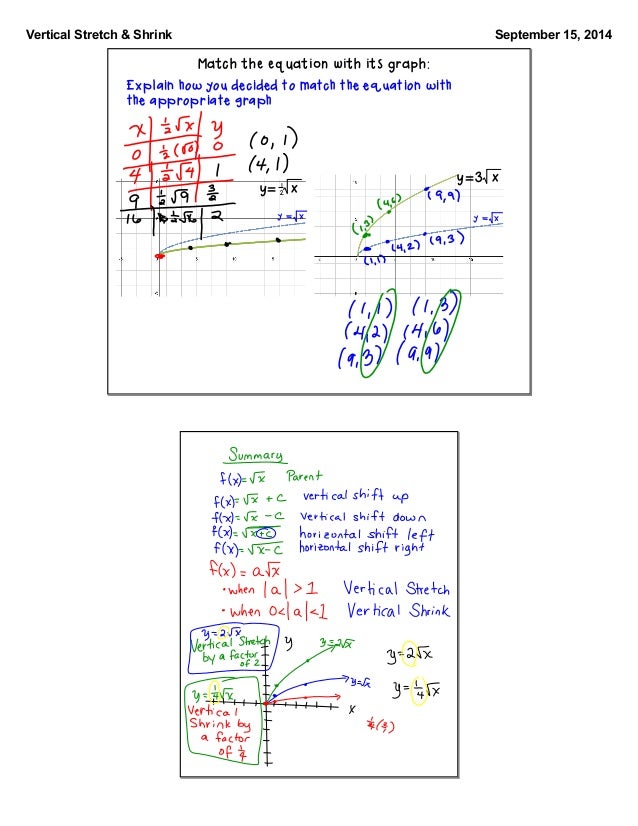 Vertical Stretch & Shrink
September 15, 2014
Match the equation with its graph:
Explain how you decided to match the equation with
the appropriate graph
x | ½√x | y
0 | ½(√0) | 0
4 | ½√4 | 1
9 | ½√9 | 3/2
16 | ½√16 | 2
(0, 1)
(4, 1)
y=½√x
y=√x
y=3√x
(1,3)
(4,6)
(9,9)
y=√x
(1,1)
(4,2)
(9,3)
(1,1) (1,3)
(4,2) (4,6)
(9,3) (9,9)
Summary
f(x)=√x Parent
f(x)=√x + C vertical shift up
f(x)=√x - C vertical shift down
f(x)=√x+C horizontal shift left
f(x)=√x-C horizontal shift right
f(x) = a√x
• when |a| > 1 Vertical Stretch
• when 0<|a|<1 Vertical Shrink
y=2√x
Vertical Stretch
by a factor
of 2
y
y=2√x
y=√x
x
y=¼√x
Vertical
Shrink by
a factor
of ¼
y=2√x
y=¼√x